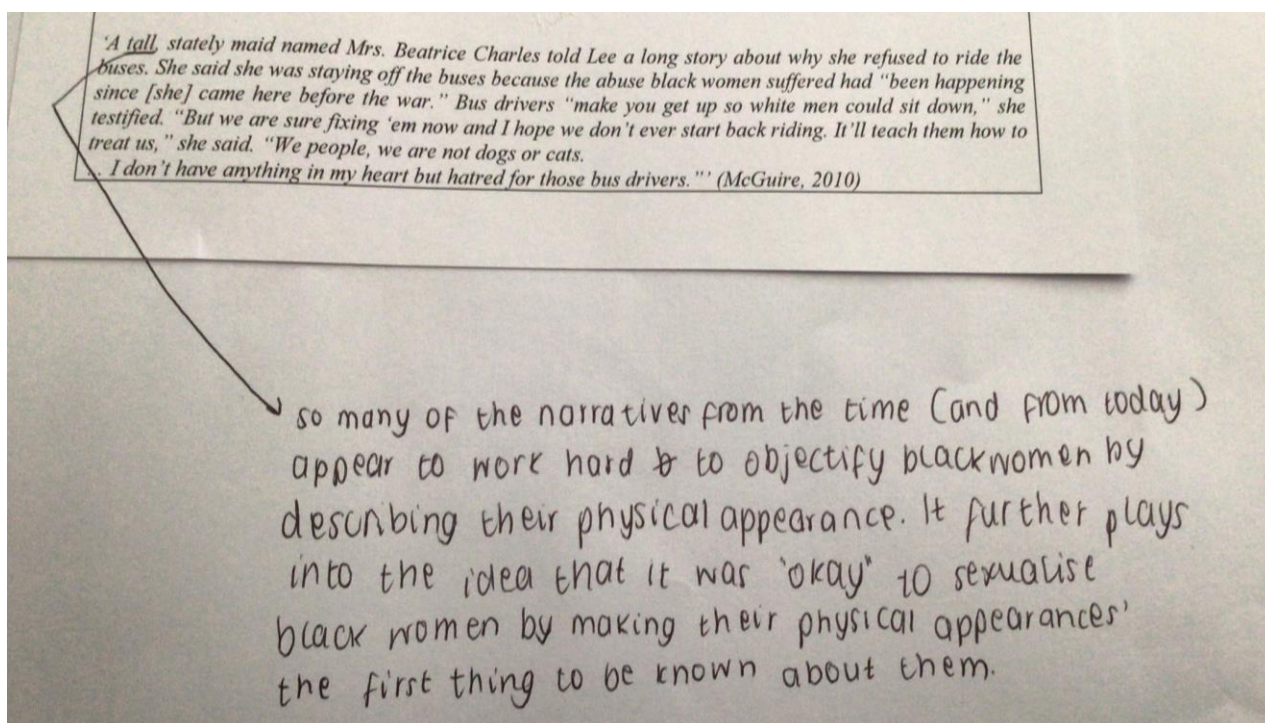 'A tall, stately maid named Mrs. Beatrice Charles told Lee a long story about why she refused to ride the
buses. She said she was staying off the buses because the abuse black women suffered had "been happening
since [she] came here before the war." Bus drivers "make you get up so white men could sit down," she
testified. "But we are sure fixing 'em now and I hope we don't ever start back riding. It'll teach them how to
treat us," she said. "We people, we are not dogs or cats.
.. I don't have anything in my heart but hatred for those bus drivers."' (McGuire, 2010)
so many of the narratives from the time (and from today)
appear to work hard to objectify black women by
describing their physical appearance. It further plays
into the idea that it was 'okay" to sexualise
black women by making their physical appearances'
the first thing to be known about them.